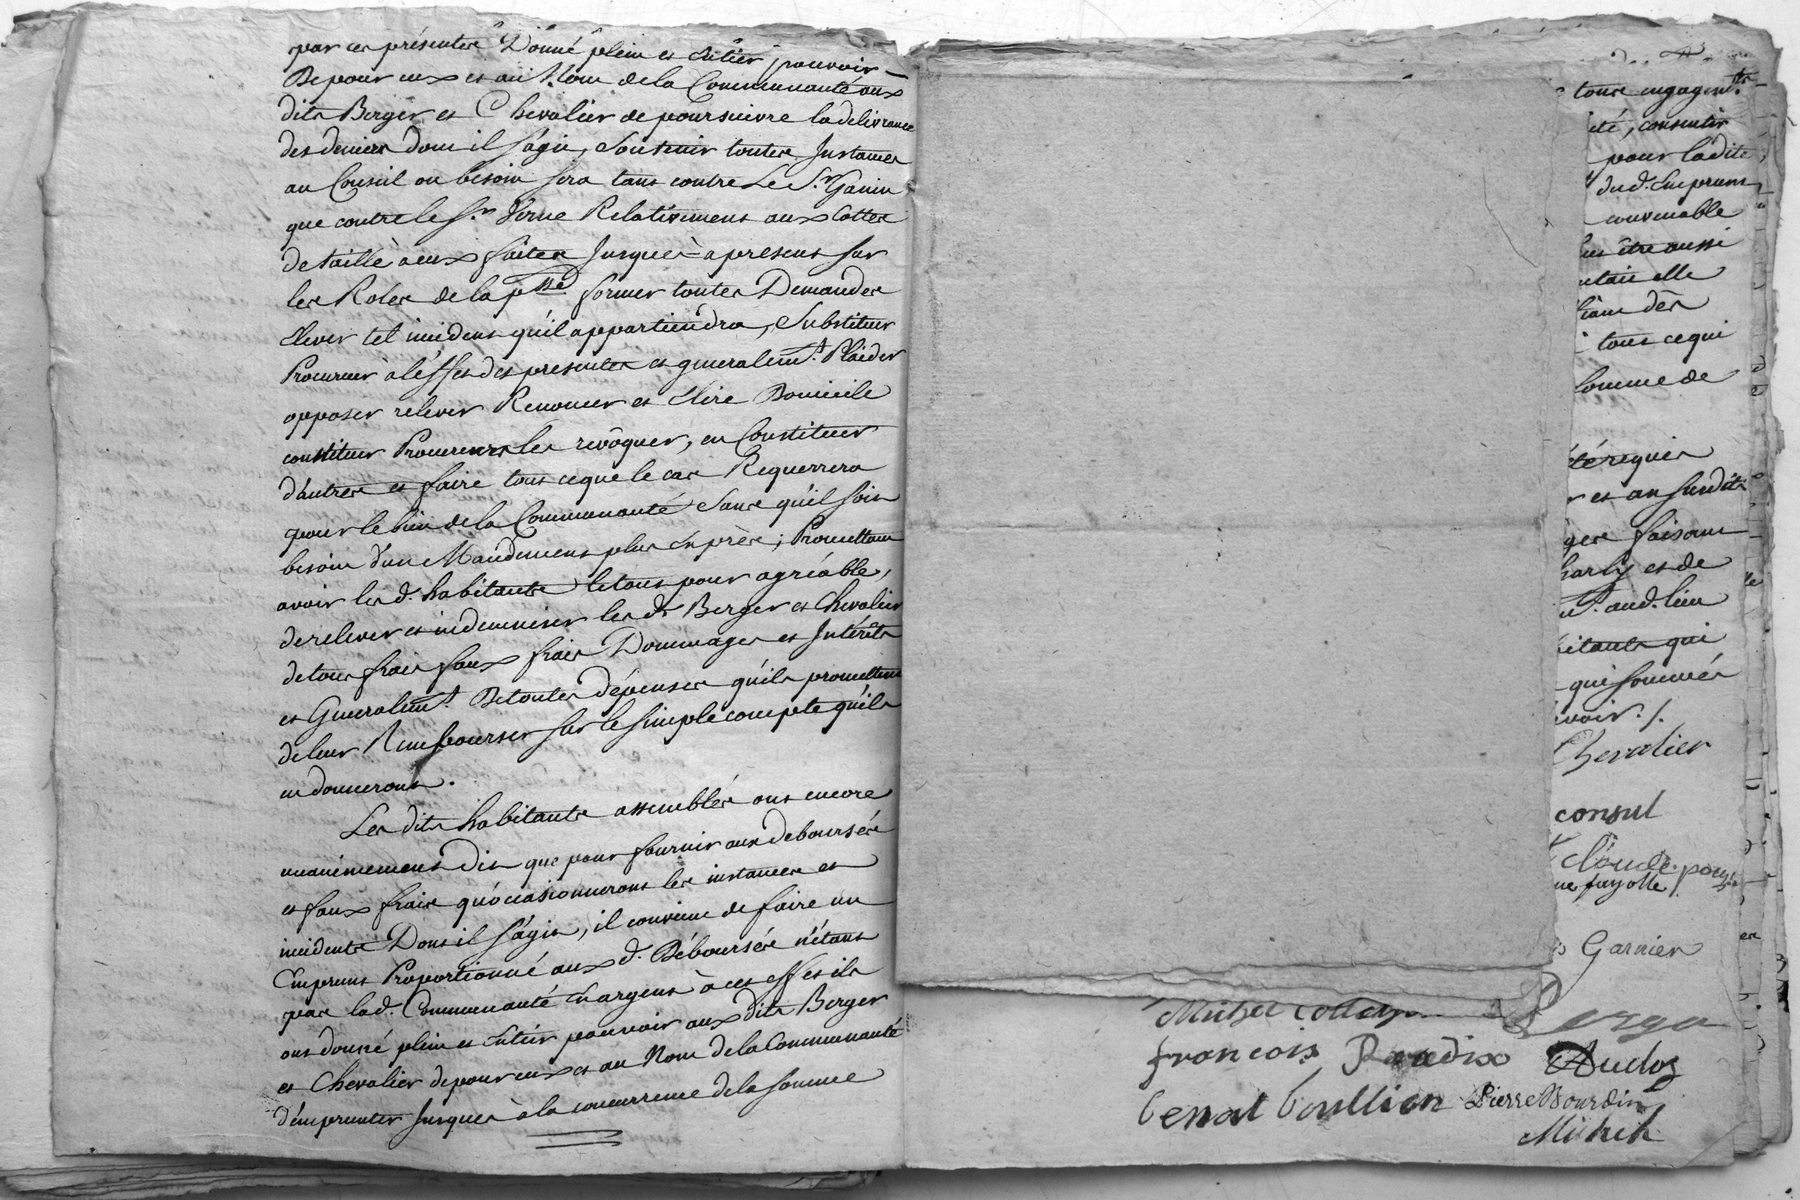 par ces présentes Donné plein et entier pouvoir
De pour eux et au Nom de la Communauté aux
dits Berger et Chevalier de poursuivre la délivrance
des deniers dont il s'agit, soutenir toutes Instances
au Conseil ou besoin sera tant contre Le Sr. Ganin
que contre le Sr. Verne Relativement aux Cottes
de taille à eux faites Jusques à present sur
les Roles de la psse former toutes Demandes
Elever tel incident qu'il appartiendra, Substituer
Procureur à l'effet des presentes et generalemt. Plaider
opposer relever Renoncer et Elire Domicile
constituer Procureurs les revôquer, en Constituer
d'autres et faire tout ce que le cas Requerrera
pour le bien de la Communauté Sans qu'il soit
besoin d'un Mandement plus exprès; Promettant
avoir les d. habitants le tout pour agréable,
de relever et indemniser les ds Berger et Chevalier
de tous frais faux frais Dommages et Intérêts
et Generalemt. De toutes dépenses qu'ils promettent
de leur Rembourser sur le simple compte qu'ils
en donneront.
Les dits habitants assemblés ont encore
unanimement Dit que pour fournir aux deboursés
et faux frais qu'ocasionneront les instances et
incidents Dont il s'agit, il convient de faire un
Emprunt Proportionné aux d. Déboursés n'étant
par lad. Communauté En argent à cet effet ils
ont donné plein et Entier pouvoir aux dits Berger
et Chevalier de pour eux et au Nom de la Communauté
d'emprunter Jusques à la concurrence de la somme
tous engagemts
été, consentir
pour ladite
dud. Emprunt
convenable
être aussi
elle
dès
tout ce qui
somme de
été requis
et an susdits
faisant
Charly et de
aud. lieu
habitants qui
qui sommés
Chevalier
consul
Claude
fayolle
Garnier
Michel
françois
Audoz
benoit boullion Pierre Bourdin
Michel